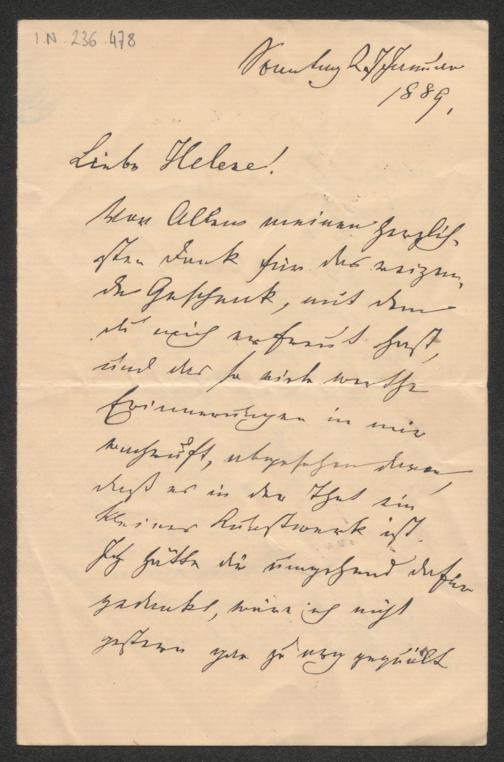 I.N. 236.478
Sonntag 27 Januar
1889.
Liebe Helene!
Vor Allem meinen herzlich-
sten Dank für das reizen-
de Geschenk, mit dem
du mich erfreut hast,
und das so viele werthe
Erinnerungen in mir
wachruft, abgesehen davon,
daß es in der That ein
kleines Kunstwerk ist.
Ich hätte dir umgehend dafür
gedankt, wäre ich nicht
gestern gar zu arg gequält